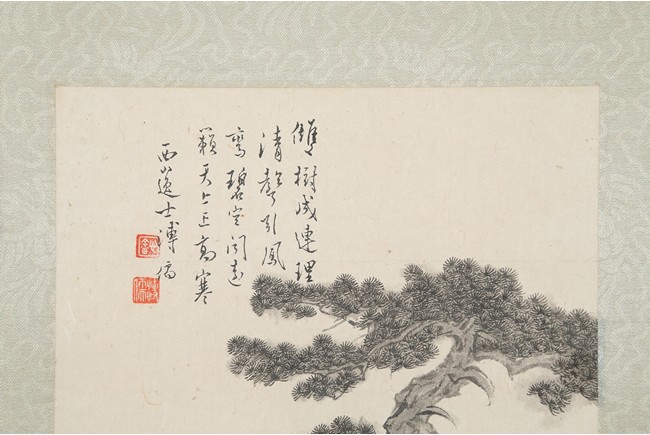 雙樹成連理
清聲引鳳
鸞碧空聞遠
籟天上正高寒
西山逸士溥儒